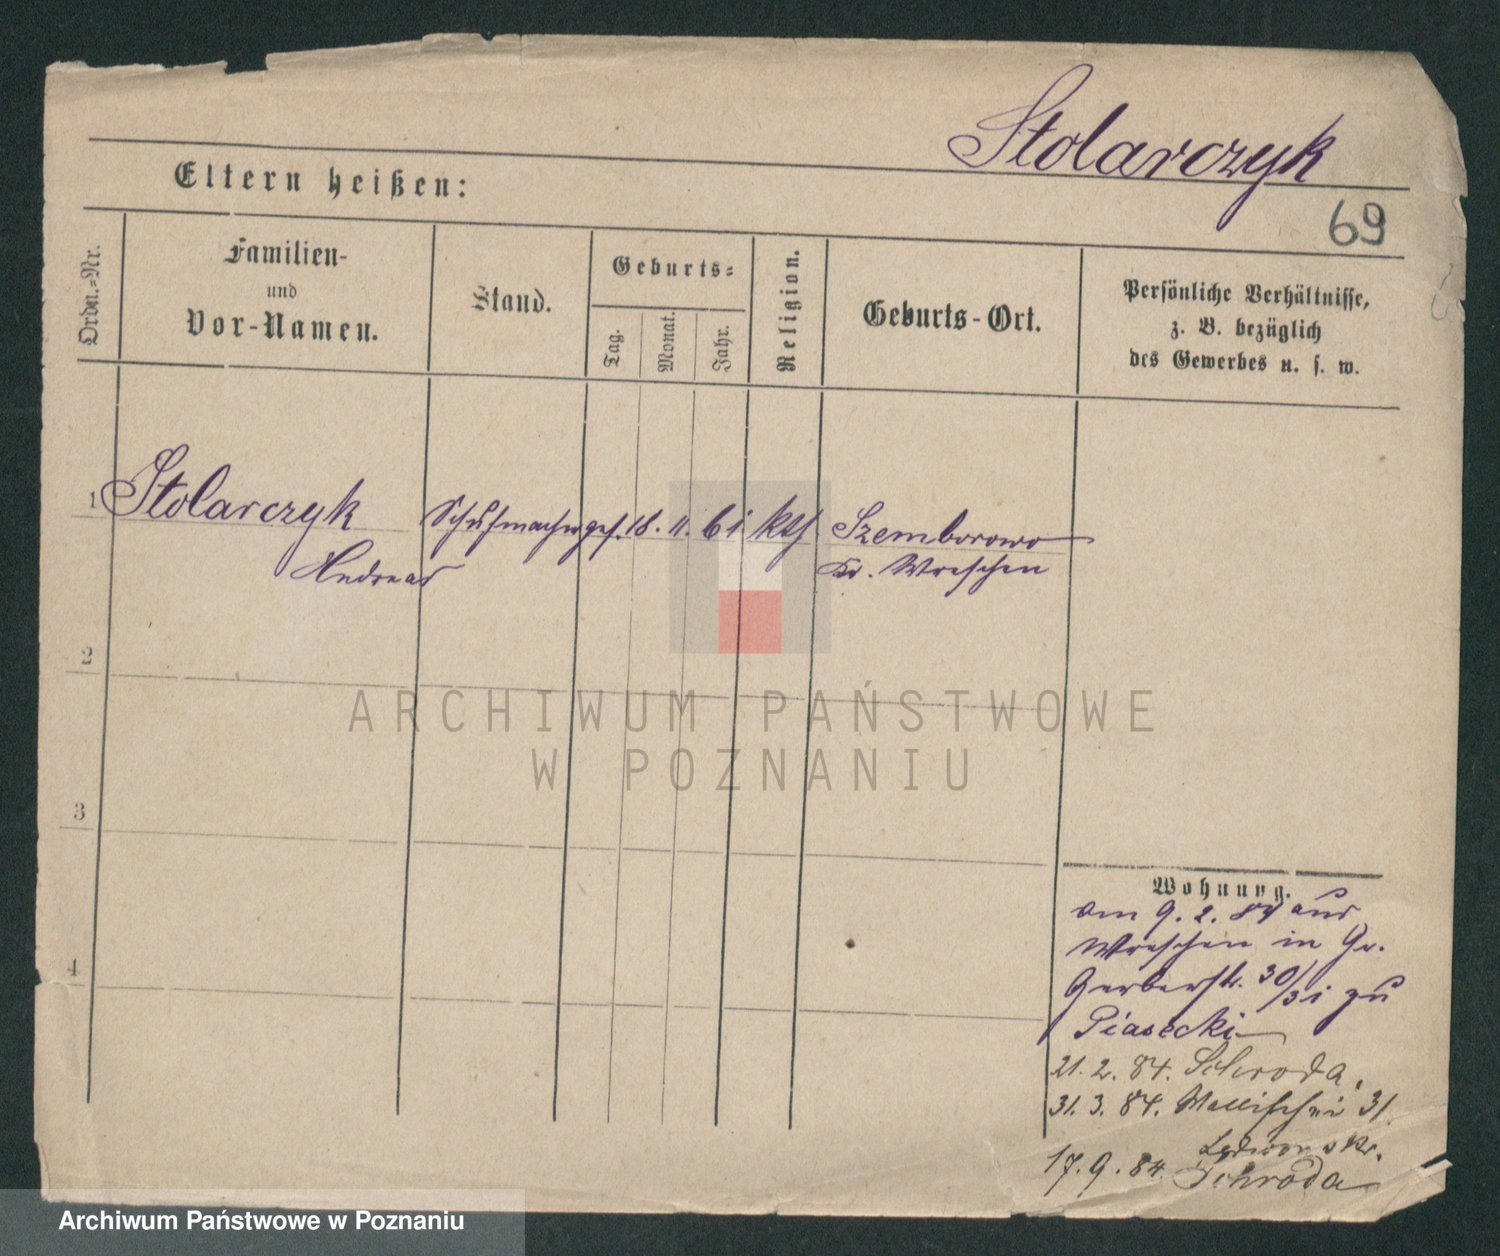 Stolarczyk
Eltern heißen:
69
Ordn.-Nr.
Familien-
und
Vor-Namen.
Stand.
Geburts-
Tag.
Monat.
Jahr.
Religion.
Geburts-Ort.
Persönliche Verhältnisse,
z. B. bezüglich
des Gewerbes u. s. w.
1 Stolarczyk Schuhmacherges. 18. 11. 61 kth. Szemborowo
Andreas Kr. Wreschen
2
ARCHIWUM PAŃSTWOWE
W POZNANIU
3
4
Wohnung.
am 9. 2. 84 aus
Wreschen in Gr.
Gerberstr. 30/31 zu
Piasecki
21. 2. 84. Schroda.
31. 3. 84. Wallischei 31.
17. 9. 84. Schroda
Archiwum Państwowe w Poznaniu